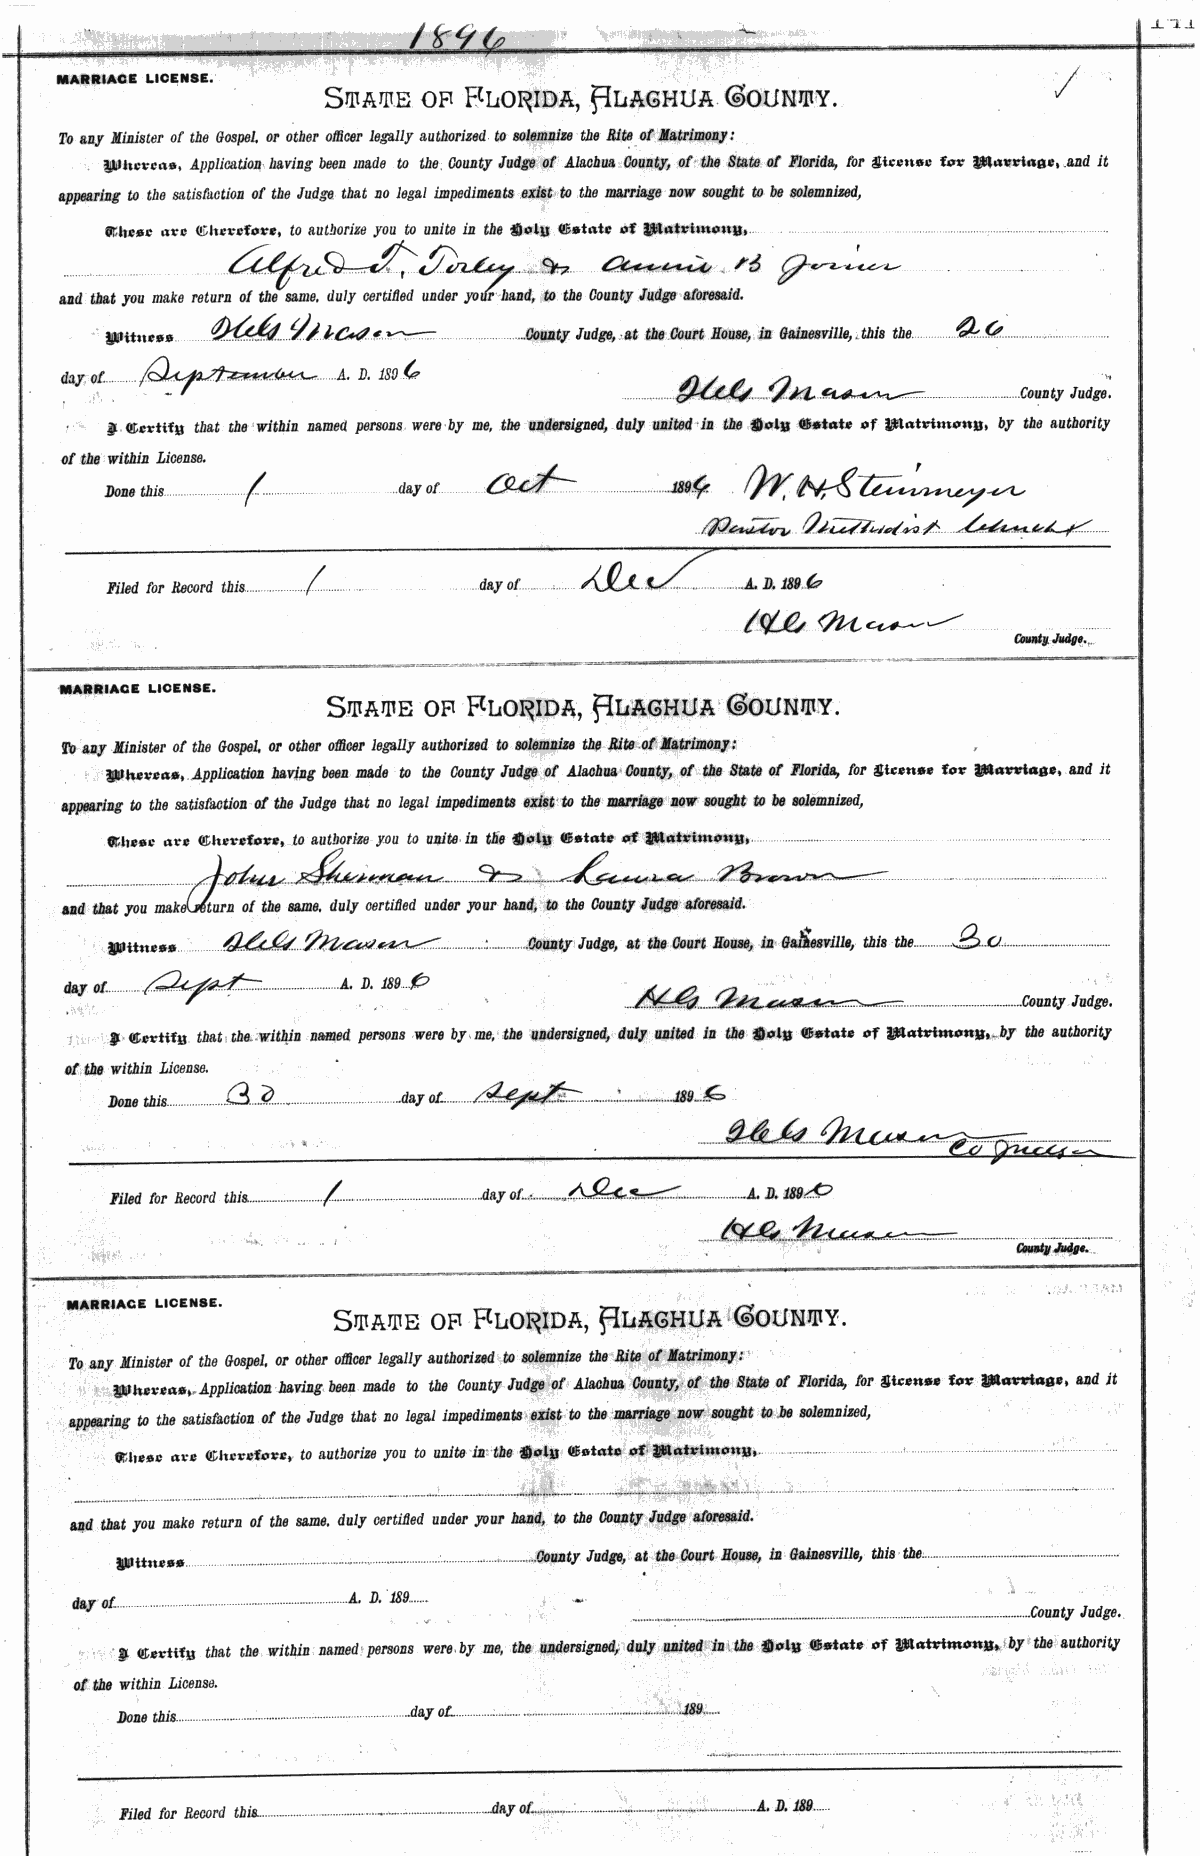 1896
MARRIAGE LICENSE.
STATE OF FLORIDA, ALACHUA COUNTY.
To any Minister of the Gospel, or other officer legally authorized to solemnize the Rite of Matrimony:
Whereas, Application having been made to the County Judge of Alachua County, of the State of Florida, for License for Marriage, and it
appearing to the satisfaction of the Judge that no legal impediments exist to the marriage now sought to be solemnized,
These are Therefore, to authorize you to unite in the Holy Estate of Matrimony,
Alfred T. Torley & Annie B Joiner
and that you make return of the same, duly certified under your hand, to the County Judge aforesaid.
Witness Mason County Judge, at the Court House, in Gainesville, this the 26
day of September A. D. 1896
Mason County Judge.
I Certify that the within named persons were by me, the undersigned, duly united in the Holy Estate of Matrimony, by the authority
of the within License.
Done this 1 day of Oct 1896 W. H. Steinmeyer
Pastor Methodist Church
Filed for Record this 1 day of Dec A. D. 1896
Mason
County Judge.
MARRIAGE LICENSE.
STATE OF FLORIDA, ALACHUA COUNTY.
To any Minister of the Gospel, or other officer legally authorized to solemnize the Rite of Matrimony:
Whereas, Application having been made to the County Judge of Alachua County, of the State of Florida, for License for Marriage, and it
appearing to the satisfaction of the Judge that no legal impediments exist to the marriage now sought to be solemnized,
These are Therefore, to authorize you to unite in the Holy Estate of Matrimony,
John Sherman & Laura Brown
and that you make return of the same, duly certified under your hand, to the County Judge aforesaid.
Witness Mason County Judge, at the Court House, in Gainesville, this the 30
day of Sept A. D. 1896
Mason County Judge.
I Certify that the within named persons were by me, the undersigned, duly united in the Holy Estate of Matrimony, by the authority
of the within License.
Done this 30 day of Sept 1896
Mason
Co Judge
Filed for Record this 1 day of Dec A. D. 1896
Mason
County Judge.
MARRIAGE LICENSE.
STATE OF FLORIDA, ALACHUA COUNTY.
To any Minister of the Gospel, or other officer legally authorized to solemnize the Rite of Matrimony:
Whereas, Application having been made to the County Judge of Alachua County, of the State of Florida, for License for Marriage, and it
appearing to the satisfaction of the Judge that no legal impediments exist to the marriage now sought to be solemnized,
These are Therefore, to authorize you to unite in the Holy Estate of Matrimony,
and that you make return of the same, duly certified under your hand, to the County Judge aforesaid.
Witness County Judge, at the Court House, in Gainesville, this the
day of A. D. 189
County Judge.
I Certify that the within named persons were by me, the undersigned, duly united in the Holy Estate of Matrimony, by the authority
of the within License.
Done this day of 189
Filed for Record this day of A. D. 189